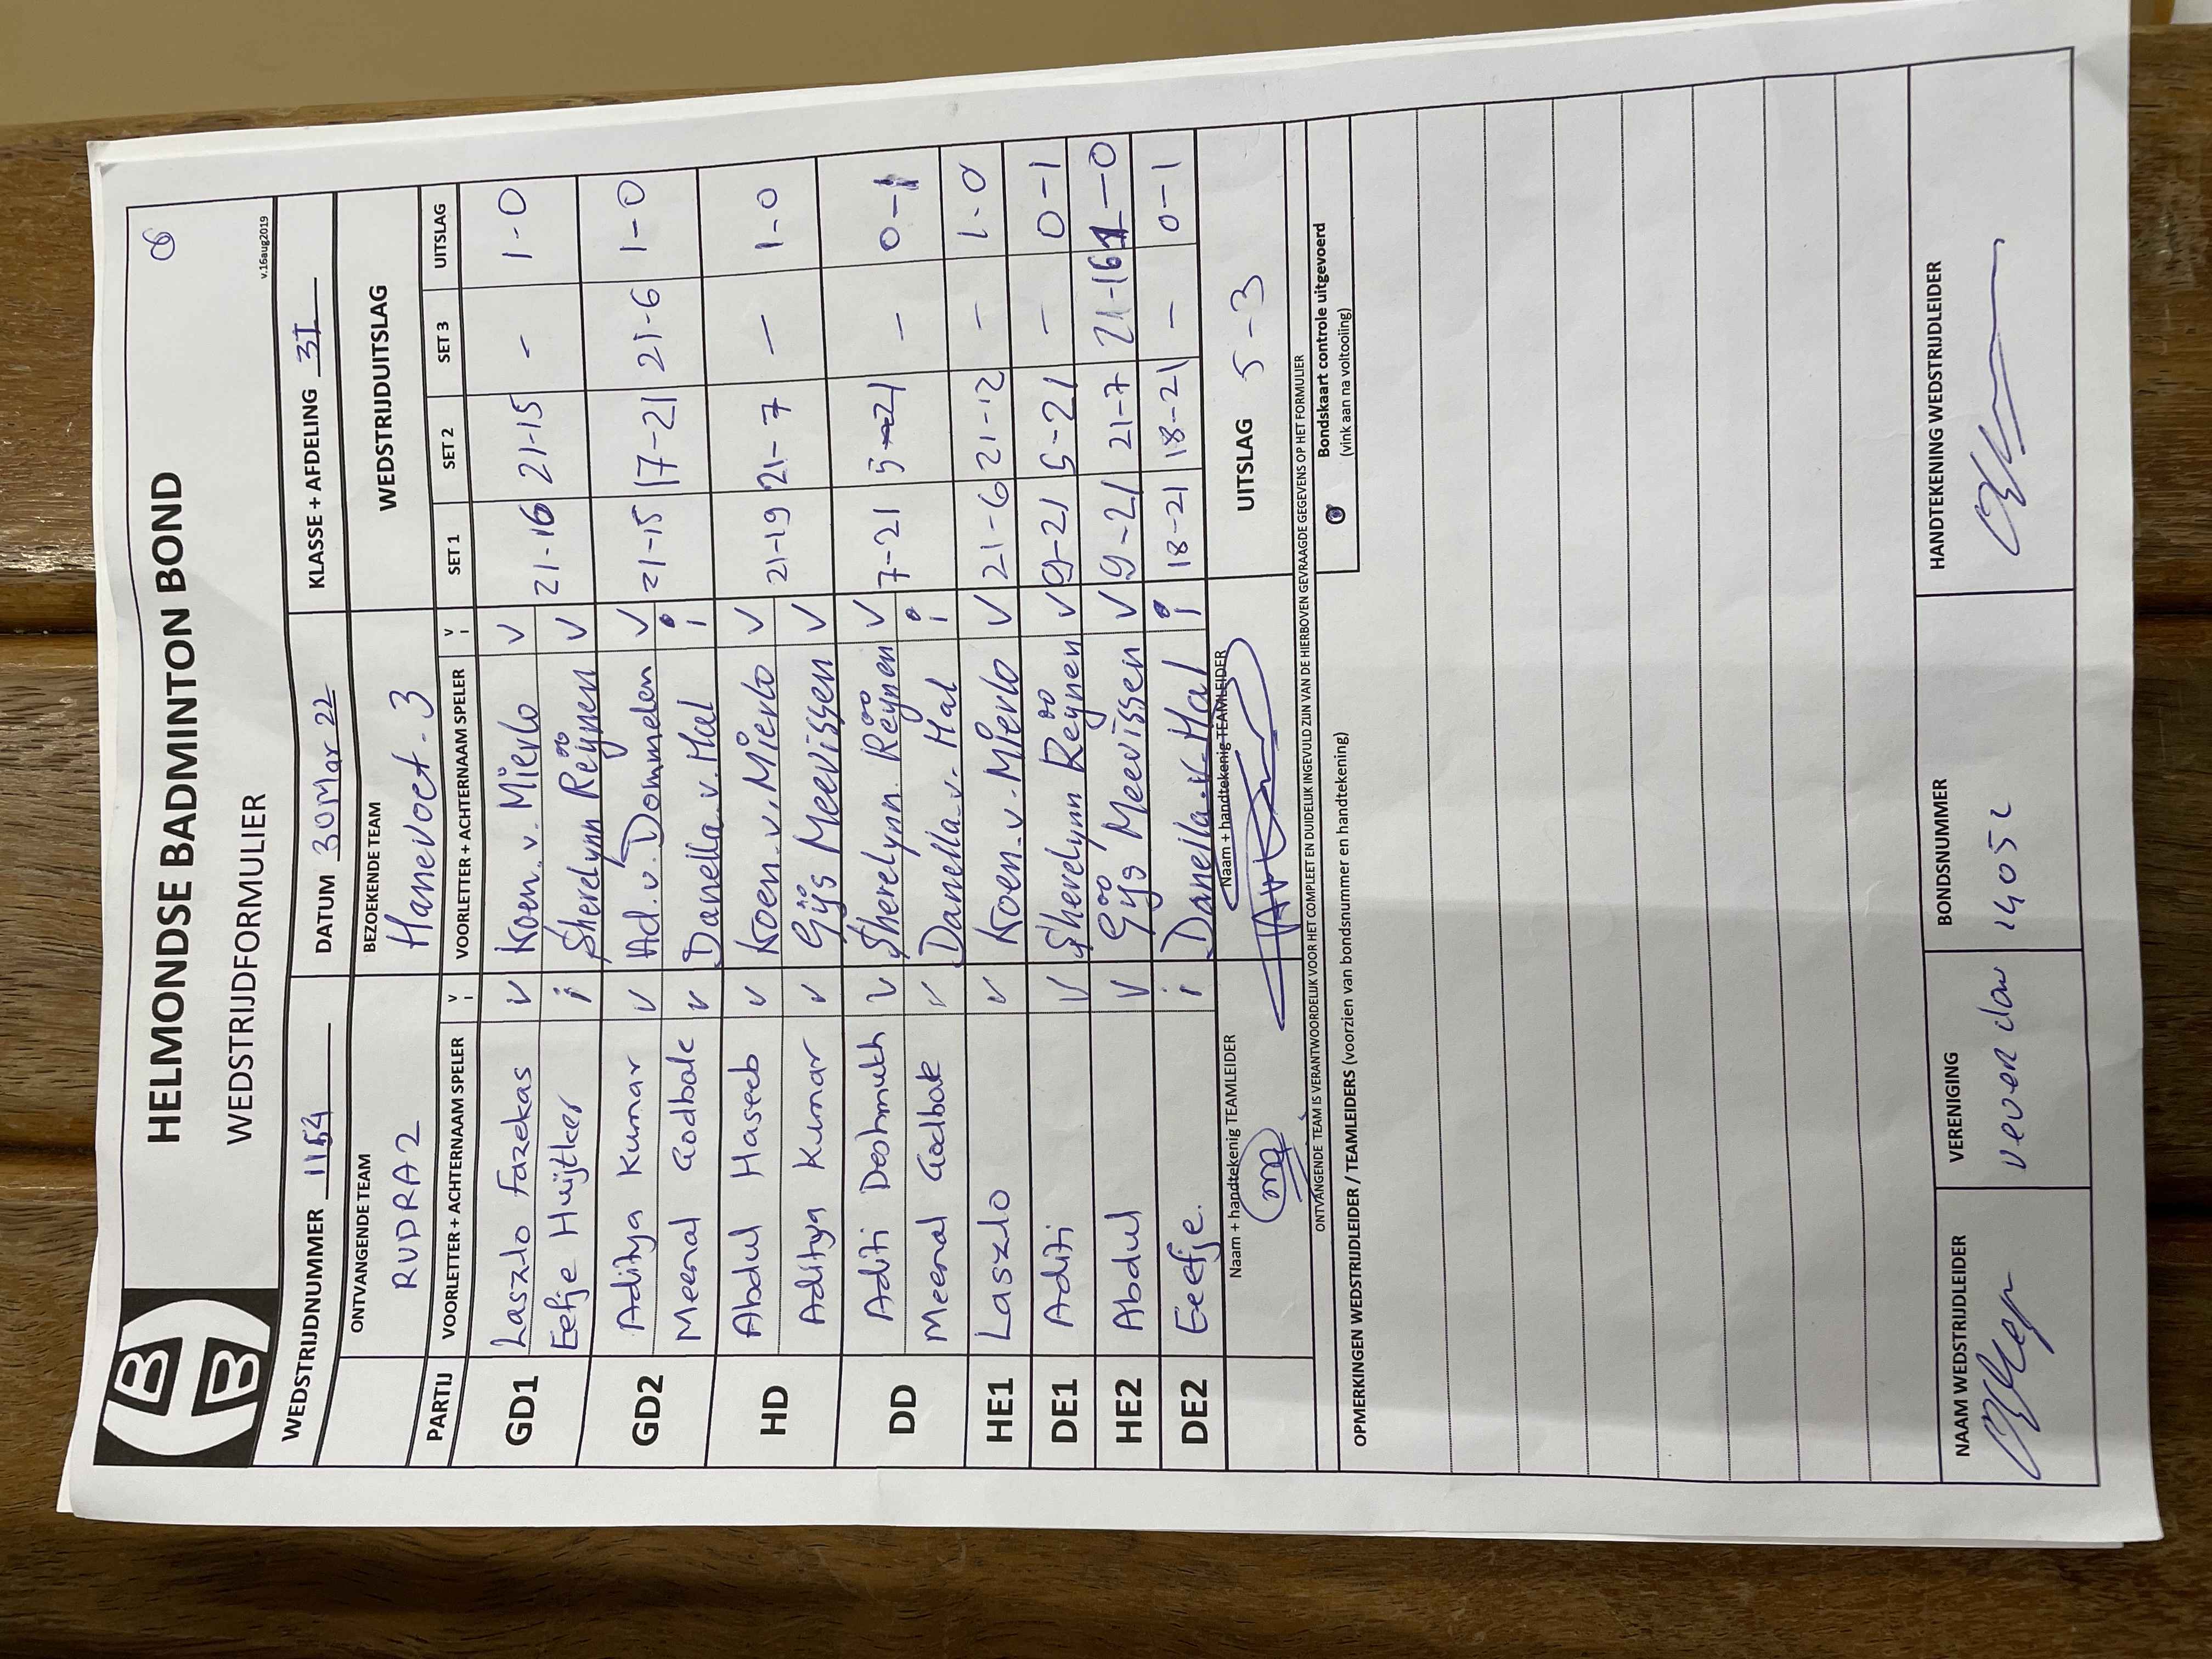 HELMONDSE BADMINTON BOND
WEDSTRIJDFORMULIER
v.16aug2019
WEDSTRIJDNUMMER 1154 DATUM 30 Mar 22 KLASSE + AFDELING 3I
ONTVANGENDE TEAM BEZOEKENDE TEAM WEDSTRIJDUITSLAG
RUDRA 2 Hanevoet. 3
PARTIJ VOORLETTER + ACHTERNAAM SPELER V I VOORLETTER + ACHTERNAAM SPELER V I SET 1 SET 2 SET 3 UITSLAG
GD1 Laszlo Fazekas v Koen. v. Mierlo v 21-16 21-15 - 1-0
Eefje Huijtker i Sherelynn Reijnen v
GD2 Aditya Kumar v Ad. v. Dommelen v 21-15 17-21 21-6 1-0
Meenal Godbole v Danella. v. Hal i
HD Abdul Haseeb v Koen. v. Mierlo v 21-19 21-7 - 1-0
Aditya Kumar v Gijs Meevissen v
DD Aditi Deshmukh v Sherelynn. Reijnen v 7-21 5-21 - 0-1
Meenal Godbole v Danella. v. Hal i
HE1 Laszlo v Koen. v. Mierlo v 21-6 21-12 - 1-0
DE1 Aditi V Sherelynn Reijnen v 9-21 5-21 - 0-1
HE2 Abdul V Gijs Meevissen V 9-21 21-7 21-16 1-0
DE2 Eefje. i Danella. v. Hal i 18-21 18-21 - 0-1
Naam + handtekenig TEAMLEIDER Naam + handtekenig TEAMLEIDER UITSLAG 5-3
ONTVANGENDE TEAM IS VERANTWOORDELIJK VOOR HET COMPLEET EN DUIDELIJK INGEVULD ZIJN VAN DE HIERBOVEN GEVRAAGDE GEGEVENS OP HET FORMULIER
OPMERKINGEN WEDSTRIJDLEIDER / TEAMLEIDERS (voorzien van bondsnummer en handtekening)
Bondskaart controle uitgevoerd
(vink aan na voltooiing)
NAAM WEDSTRIJDLEIDER VERENIGING BONDSNUMMER HANDTEKENING WEDSTRIJDLEIDER
14052